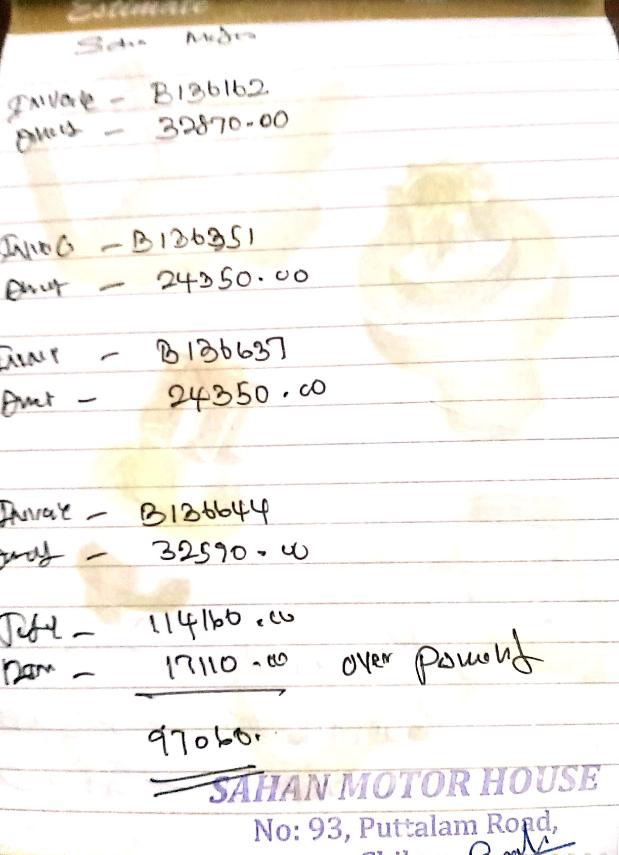 Estimate
Invoice - B136162
Amount - 32870-00
Invoice - B136351
Amount - 24350.00
Invoice - B136637
Amount - 24350.00
Invoice - B136644
Amount - 32590-00
Total - 114160.00
17110-00 over payment
97060.
SAHAN MOTOR HOUSE
No: 93, Puttalam Road,